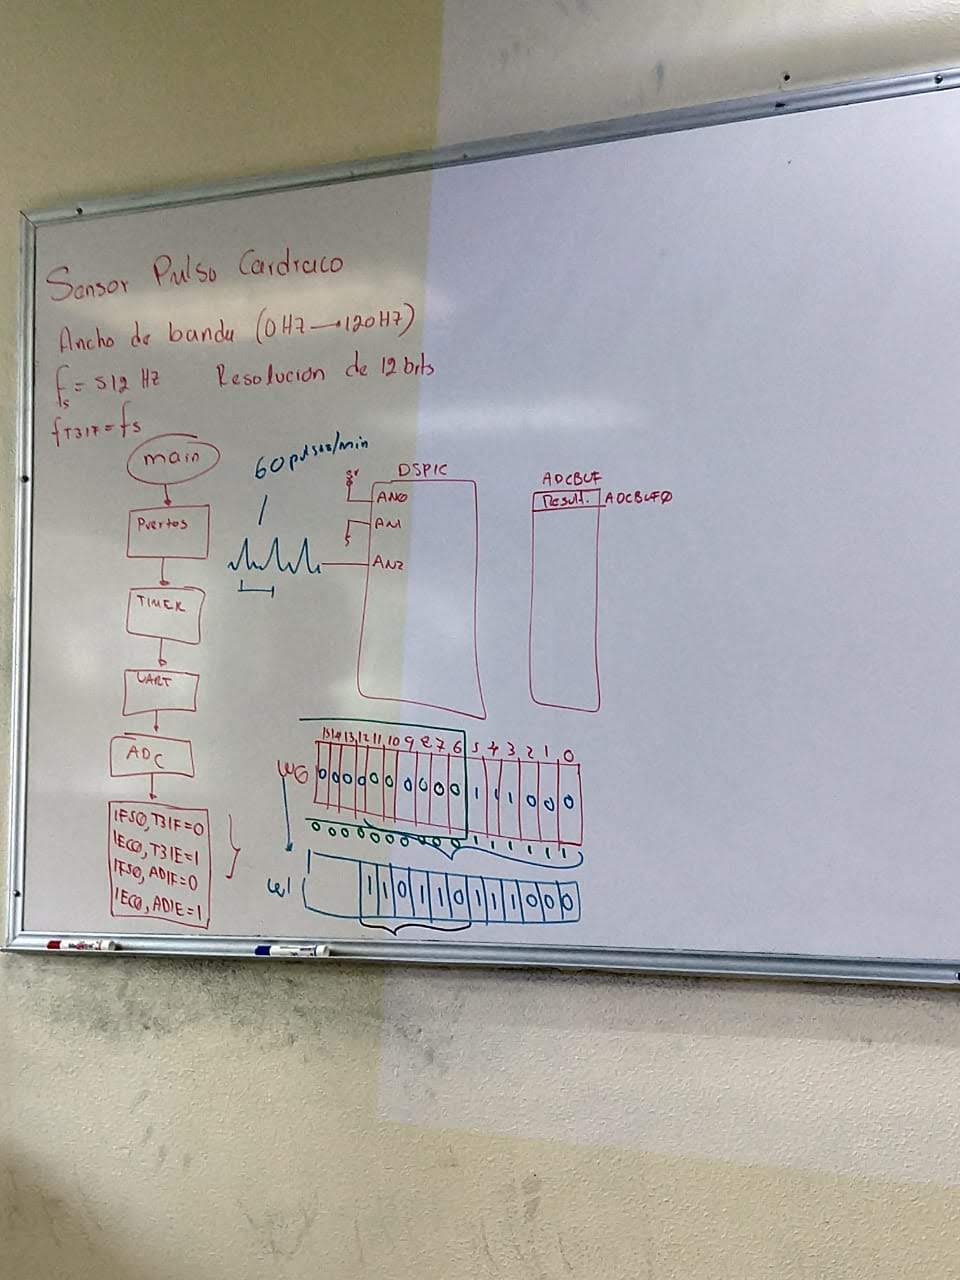 Sensor Pulso Cardiaco
Ancho de banda (0 Hz → 120 Hz)
fs = 512 Hz Resolución de 12 bits
fT3IF = fs
main
Puertos
TIMER
UART
ADC
IFS0, T3IF=0
IEC0, T3IE=1
IFS0, ADIF=0
IEC0, ADIE=1
60 pulsos/min
DSPIC
AN0
AN1
AN2
ADCBUF
Result. ADCBUF0
15 14 13 12 11 10 9 8 7 6 5 4 3 2 1 0
W0 0 0 0 0 0 0 0 0 0 0 1 1 1 0 0 0
0 0 0 0 0 0 0 0 0 0 1 1 1 1 1 1
W1 1 1 0 1 1 0 1 1 1 0 0 0